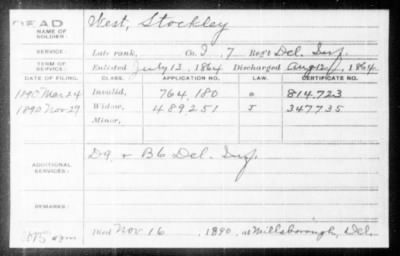 DEAD West, Stockley
NAME OF SOLDIER:
SERVICE: Late rank, Co. I, 7 Reg't Del. Inf.
TERM OF SERVICE: Enlisted July 13, 1864 Discharged Aug 12, 1864
DATE OF FILING. CLASS. APPLICATION NO. LAW. CERTIFICATE NO.
Mar 24 Invalid, 764.180 814.723
1890 Nov 29 Widow, 489251 J 347735
Minor,
ADDITIONAL SERVICES: D9 & B6 Del. Inf.
REMARKS:
Died Nov 16, 1890, at Millsborough, Del.